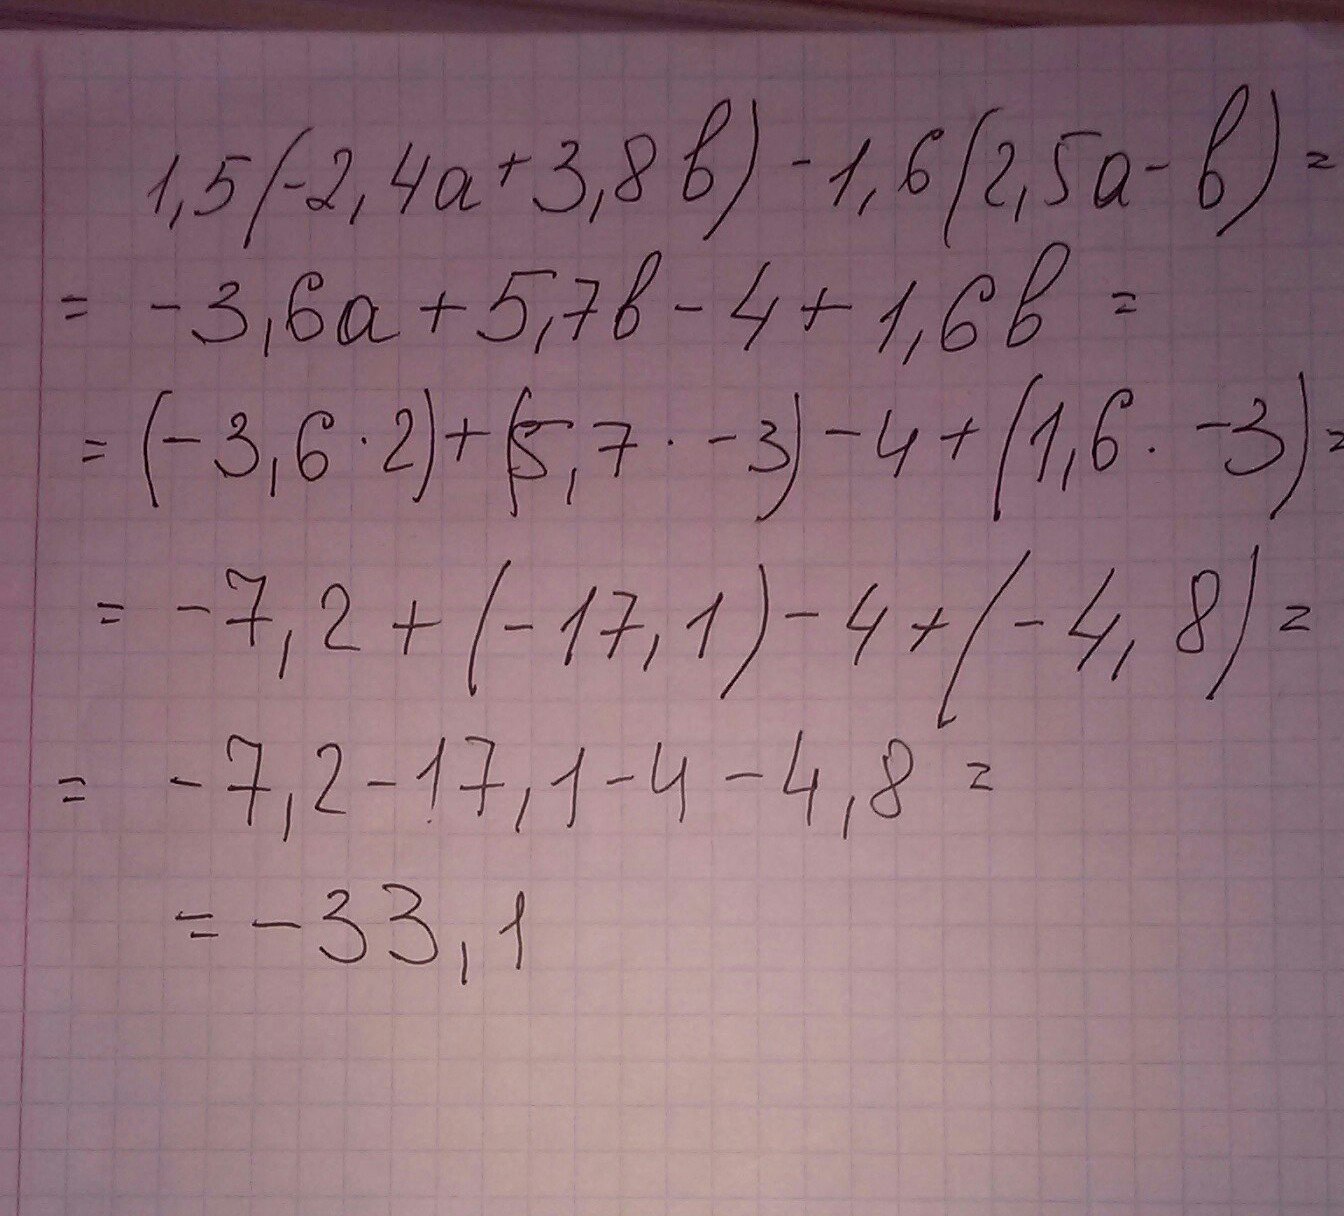 1,5(-2,4a+3,8b)-1,6(2,5a-b)=
= -3,6a+5,7b-4+1,6b=
=(-3,6·2)+(5,7·-3)-4+(1,6·-3)=
= -7,2+(-17,1)-4+(-4,8)=
= -7,2-17,1-4-4,8=
=-33,1